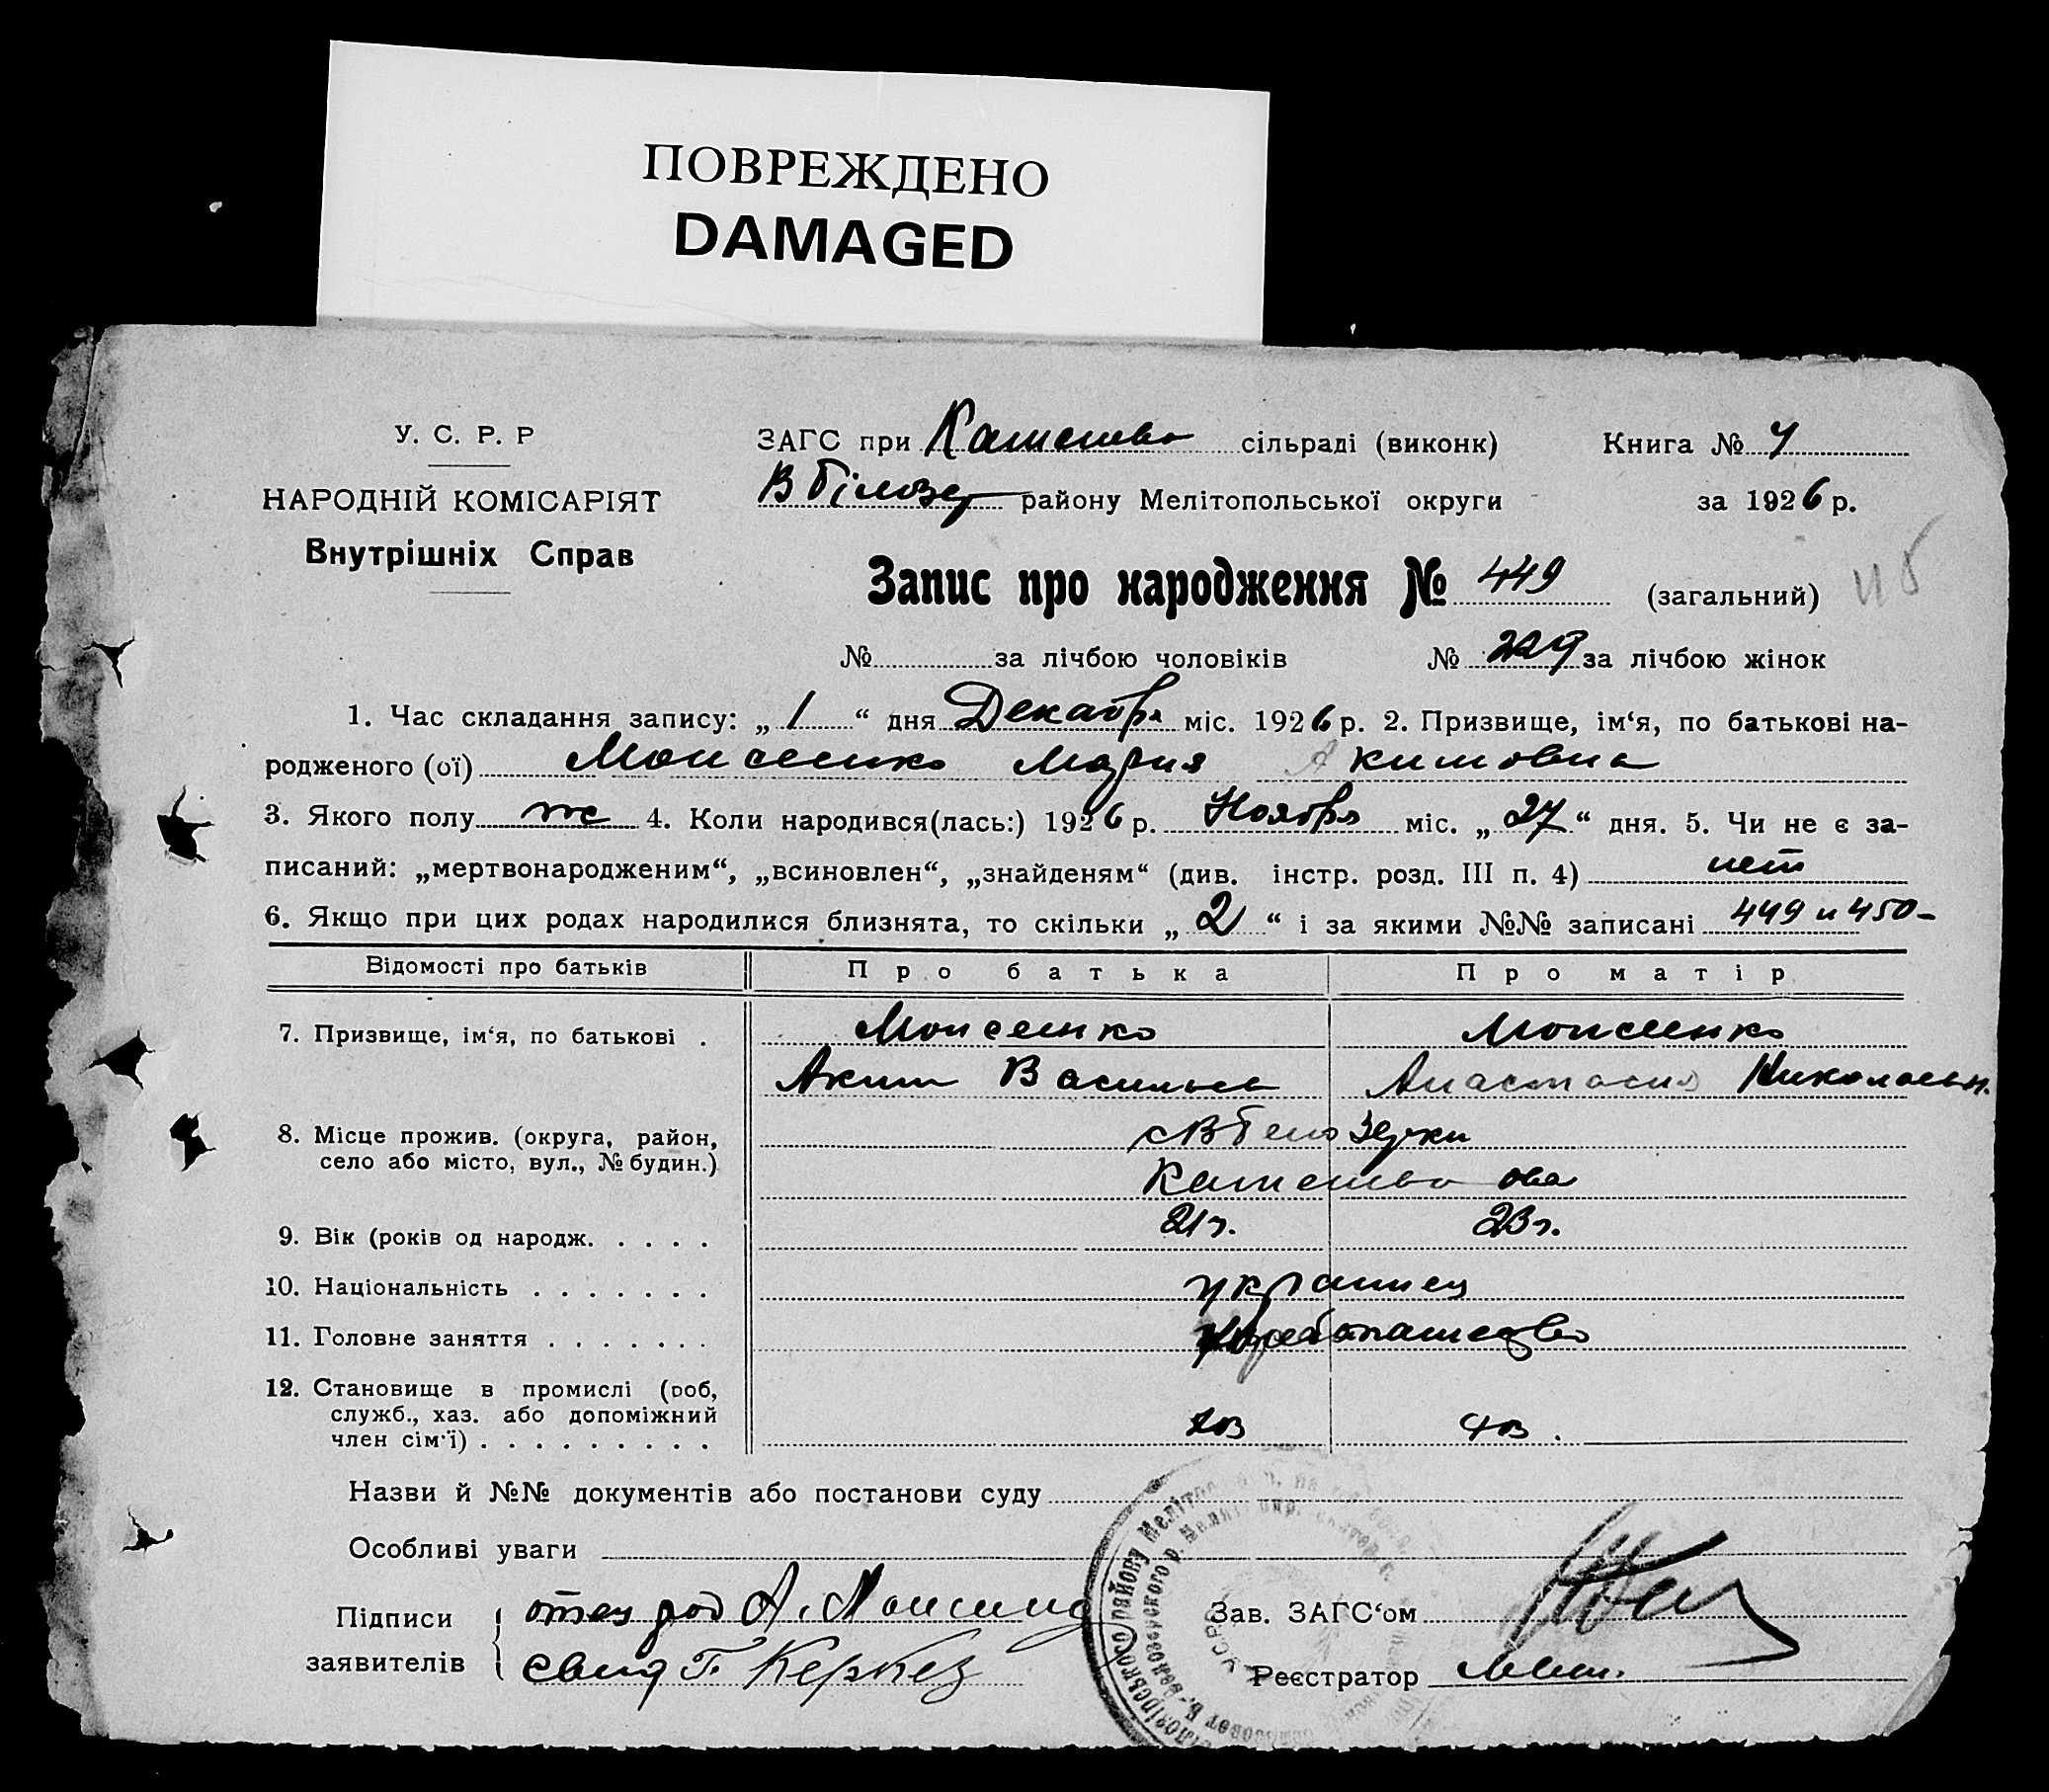 ПОВРЕЖДЕНО
DAMAGED
У. С. Р. Р
НАРОДНІЙ КОМІСАРІЯТ
Внутрішніх Справ
ЗАГС при сільраді (виконк) Книга №
району Мелітопольської округи за 1926 р.
Запис про народження № 449 (загальний)
№ за лічбою чоловіків № 229 за лічбою жінок
1. Час складання запису: „ 1 “ дня Декабря міс. 1926 р. 2. Призвище, ім‘я, по батькові на-
родженого (ої) Моисеенко Мария Акимовна
3. Якого полу ж 4. Коли народився(лась:) 1926 р. Ноября міс. „ 27 “ дня. 5. Чи не є за-
писаний: „мертвонародженим“, „всиновлен“, „знайденям“ (див. інстр. розд. III п. 4) нет
6. Якщо при цих родах народилися близнята, то скільки „ 2 “ і за якими №№ записані 449 и 450-
Відомості про батьків Про батька Про матір
7. Призвище, ім‘я, по батькові . Моисеенко Моисеенко
Аким Васильев Анастасия Николаевн.
8. Місце прожив. (округа, район,
село або місто, вул., № будин.)
9. Вік (років од народж. . . . . 21 г. 23 г.
10. Національність . . . . . . . украинец
11. Головне заняття . . . . . . . хлебопашество
12. Становище в промислі (роб,
служб., хаз. або допоміжний
член сім‘ї) . . . . . . . . .
Назви й №№ документів або постанови суду
Особливі уваги
Підписи отец А.
заявителів свид Г. Керкез
Зав. ЗАГС‘ом
Реєстратор